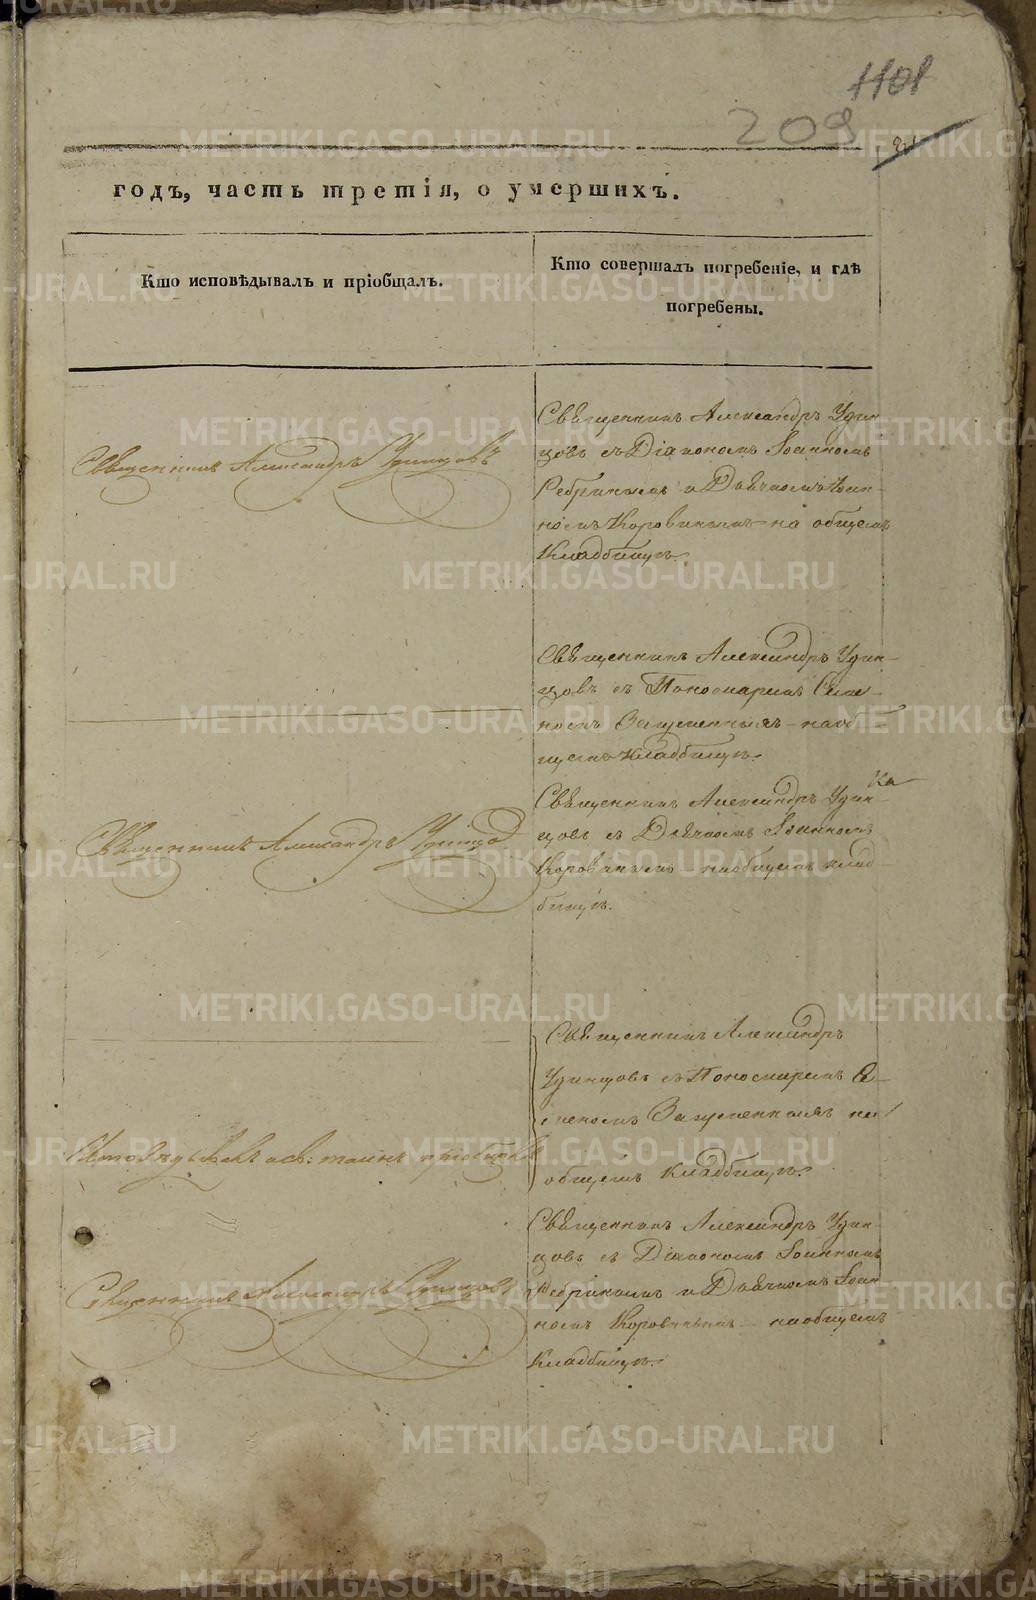 1101
209
годъ, часть третія, о умершихъ.
Кто исповѣдывалъ и пріобщалъ.
Кто совершалъ погребеніе, и гдѣ
погребены.
Священникъ Александръ Удинцовъ
Священникъ Александръ Удин
цовъ съ Діакономъ Іоанномъ
Ребринымъ и Дьячкомъ Іоан-
номъ Коровинымъ на общемъ
Кладбищѣ.
Священникъ Александръ Удин-
цовъ съ Пономаремъ Семе-
номъ на об-
щемъ Кладбищѣ.
Священникъ Александръ Удинцов
Священникъ Александръ Удин-
цовъ съ Дьячкомъ Іоанномъ
Коровинымъ на общемъ клад-
бищѣ.
Священникъ Александръ
Удинцовъ съ Пономаремъ Се-
меномъ на
общемъ Кладбищѣ.
св: таинъ
Священникъ Александръ Удинцовъ
Священникъ Александръ Удин-
цовъ съ Діакономъ Іоанномъ
Ребринымъ и Дьячкомъ Іоан
номъ Коровинымъ на общемъ
Кладбищѣ.
METRIKI.GASO-URAL.RU